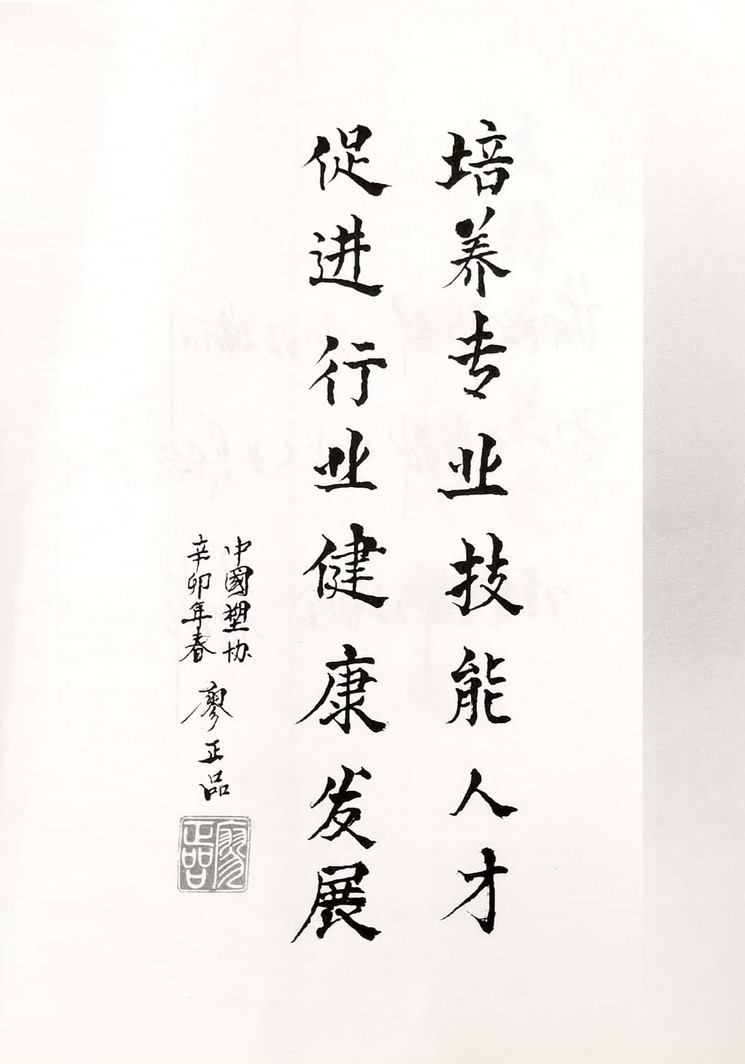 培养专业技能人才
促进行业健康发展
中國塑协
辛卯年春
廖正品
廖正品